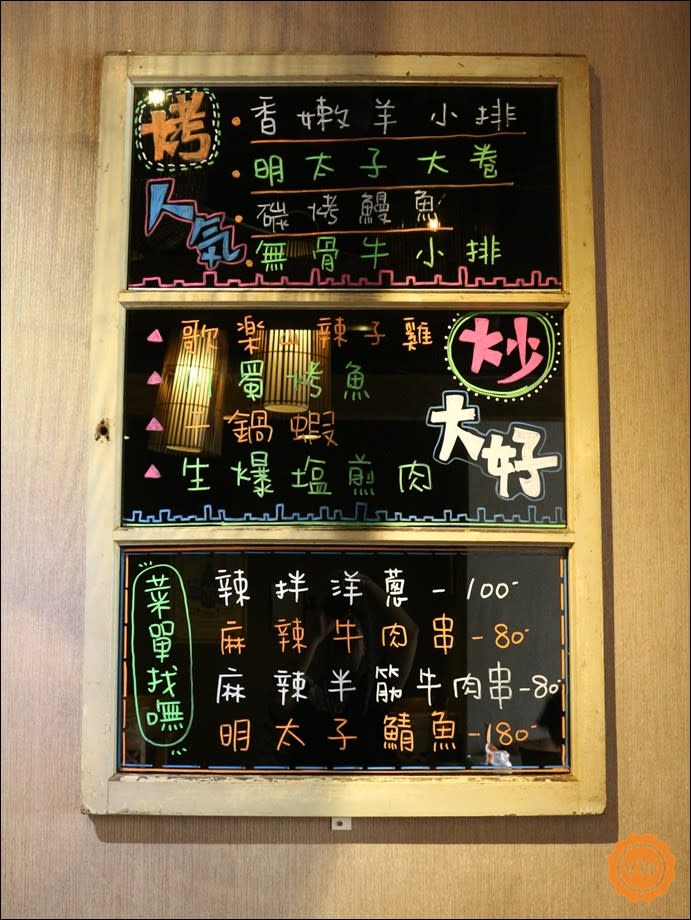 烤
人氣
香嫩羊小排
明太子大卷
碳烤鰻魚
無骨牛小排
炒
大好
歌楽山辣子雞
蜀烤魚
鍋蝦
生爆塩煎肉
菜單找嘸
辣拌洋蔥-100-
麻辣牛肉串-80-
麻辣半筋牛肉串-80-
明太子鯖魚-180-